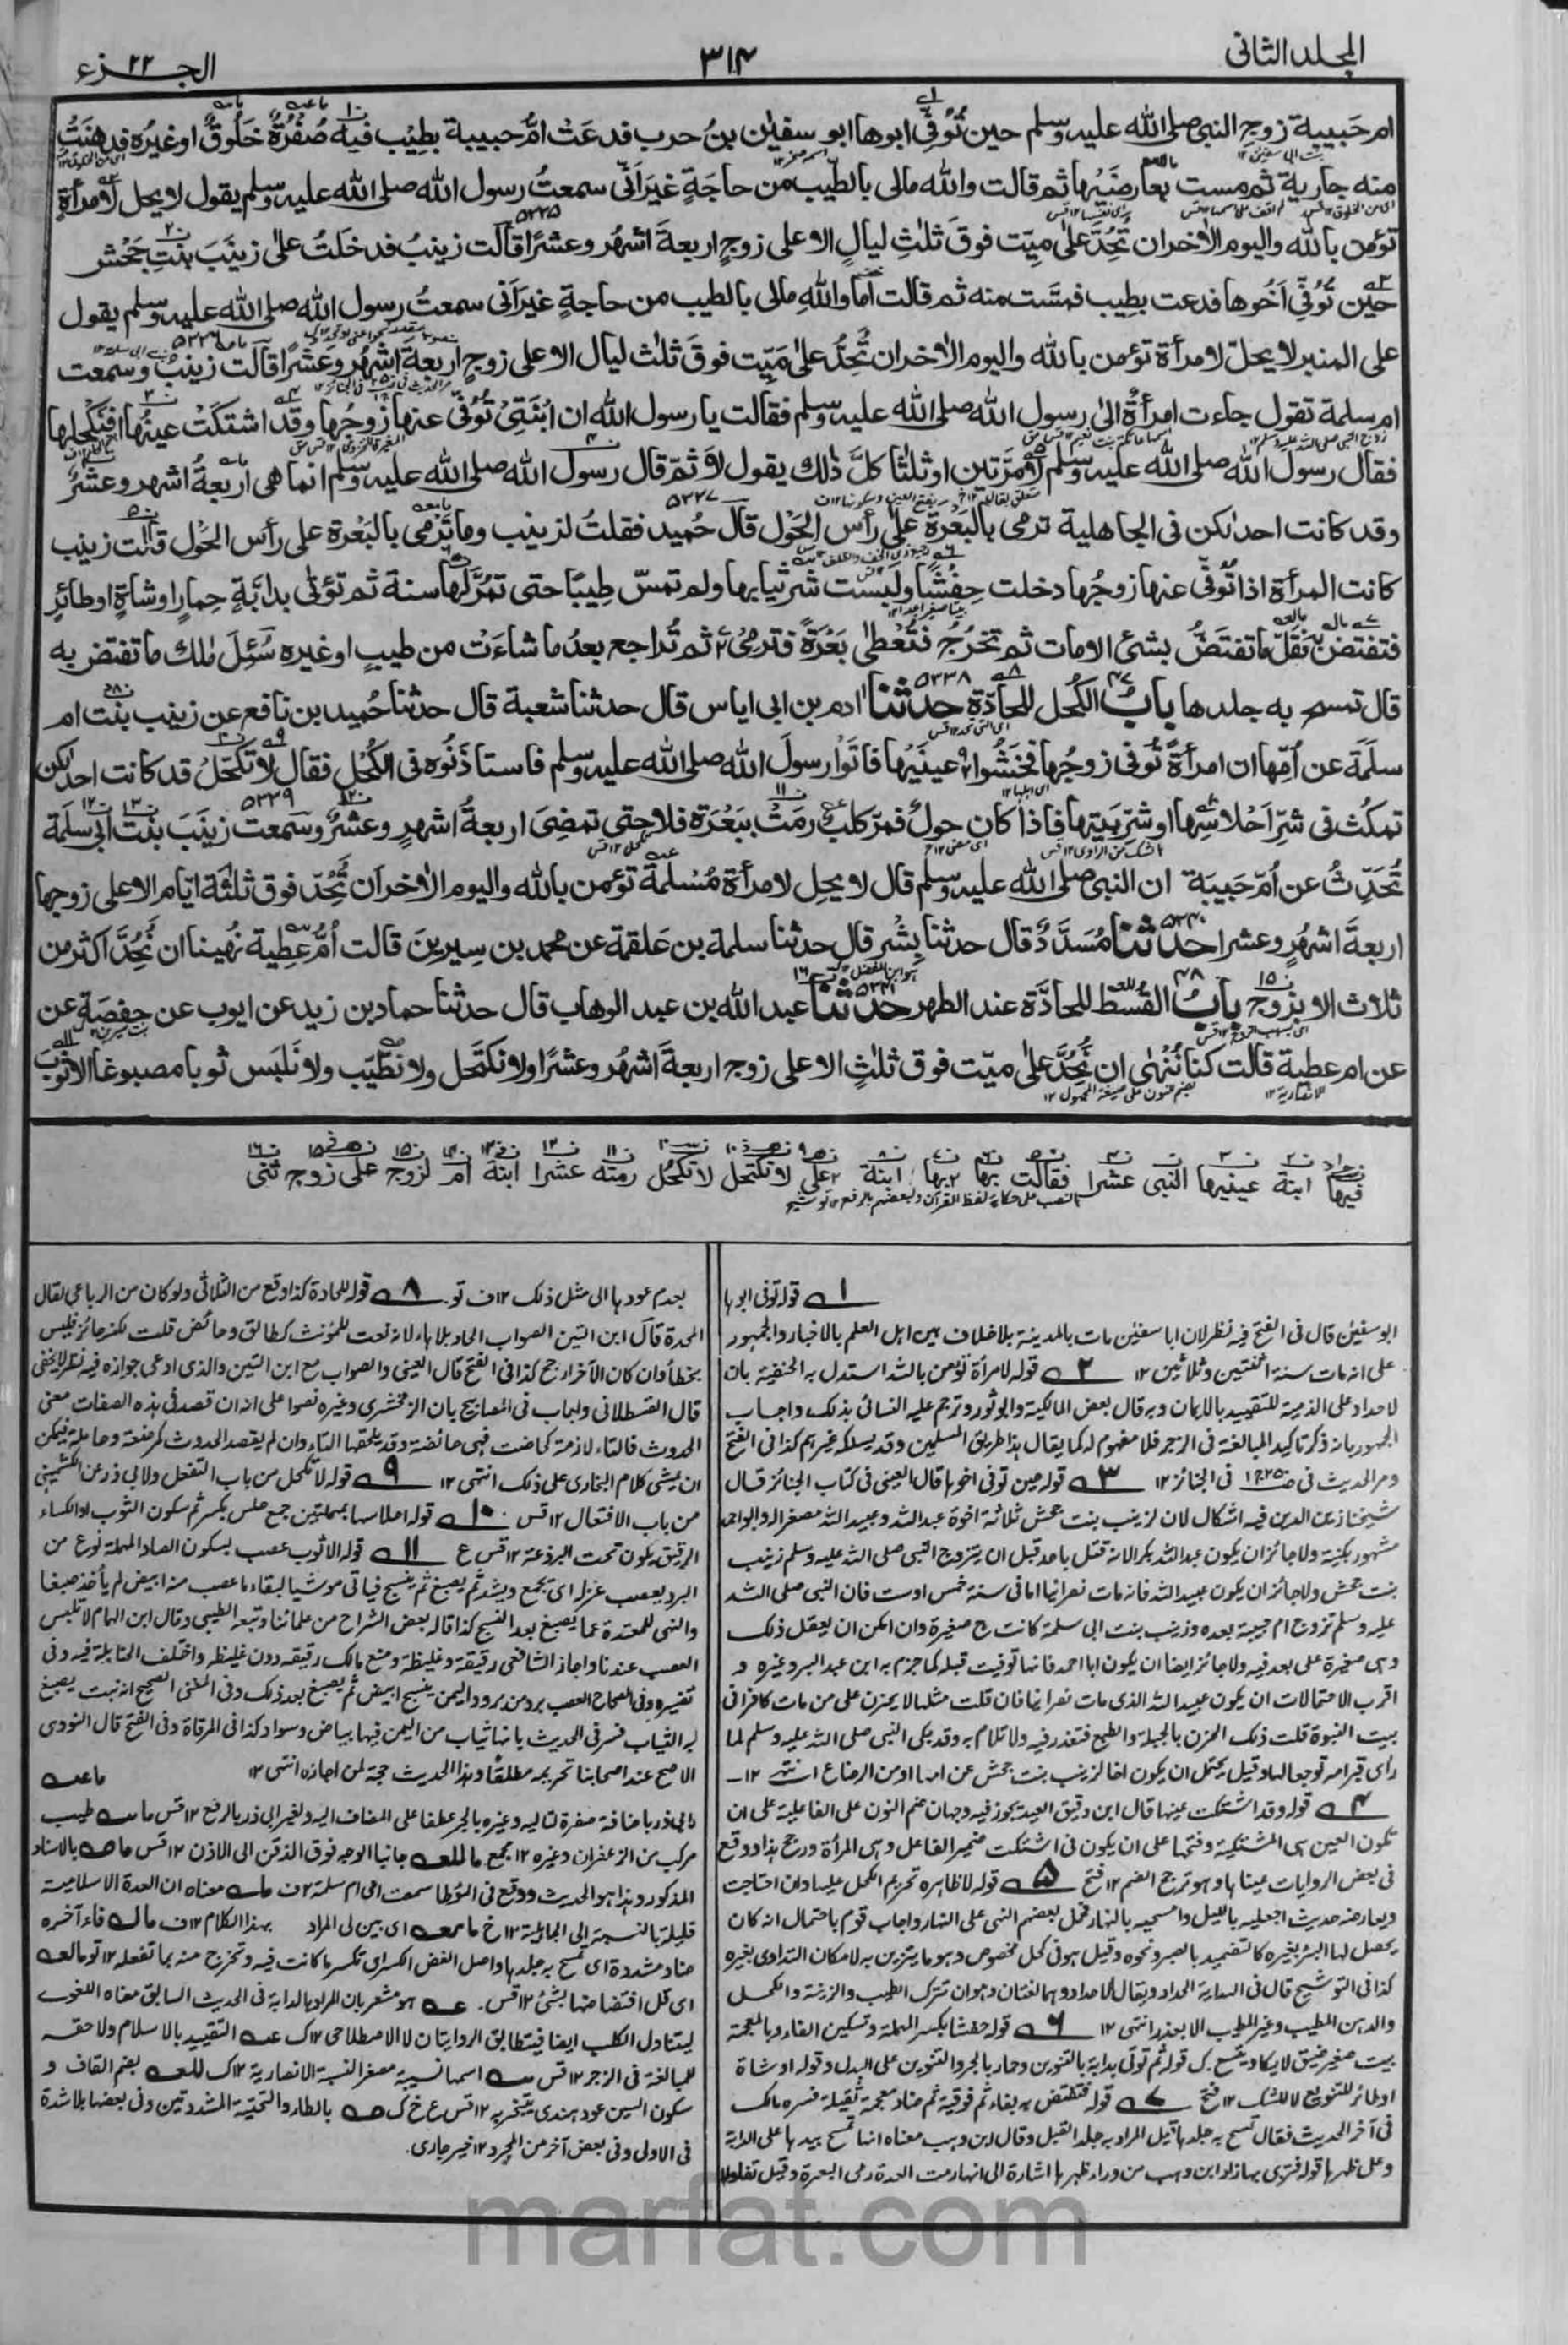 المجلد الثانی
٣١٤
الجزء ٢٢
ام حَبيبة زوجِ النبی صلی الله عليه وسلم حين تُوُفِّیَ ابوها ابو سفيٰن بنُ حرب فدعَتْ امُّ حبيبة بطِيْب فيه صُفْرَةُ خَلُوقٌ اوغيرُه فدهنَتْ
منه جارية ثم مست بعارضَيْها ثم قالت والله مالی بالطِّيب من حاجَةٍ غيرَ اَنّی سمعتُ رسول الله صلی الله عليه وسلم يقول لا يحل لامرأةٍ
تؤمن بالله واليوم الاٰخر ان تُحِدَّ علیٰ ميّت فوقَ ثلٰثِ ليالٍ الا علی زوجٍ اربعةَ اشهُر وعشرًا قالت زينبُ فدخَلتُ علیٰ زينَبَ بنتِ جَحْش
حين تُوُفِّیَ اَخُوها فدعت بطِيب فمسَّت منه ثم قالت اَما واللهِ مالی بالطيب من حاجةٍ غيرَ اَنی سمعتُ رسول الله صلی الله عليه وسلم يقول
علی المنبر لا يحلّ لامرأة تؤمن بالله واليوم الاٰخر ان تُحِدُّ علیٰ مَيّت فوقَ ثلٰث ليال الا علی زوجٍ اربعةَ اشهُر وعَشرًا قالت زينبُ وسمعت
ام سلمة تقول جاءت امرأةٌ الیٰ رسول الله صلی الله عليه وسلم فقالت يا رسول الله ان ابْنَتِیْ تُوُفِّیَ عنها زوجُها وقد اشتكَتْ عينُها افنَكْحُلها
فقال رسول الله صلی الله عليه وسلم لا مرّتين او ثلٰثا كلَّ ذٰلك يقول لا ثمّ قال رسول الله صلی الله عليه وسلم انما هی اربعةُ اشهر وعشرٌ
وقد كانت احدٰكن فی الجاهلية ترمی بالبَعْرة علیٰ رأس الحَوْل قال حُميد فقلتُ لزينب وما تَرْمی بالبَعْرة علی رأس الحَوْل قالت زينب
كانت المرأة اذا تُوُفِّیَ عنها زوجُها دخلت حِفْشًا ولَبِسَت شَرَّ ثيابِها ولم تمسّ طِيبًا حتی تمُرَّ لها سنة ثم تؤتیٰ بدابَّةٍ حِمارٍ او شاةٍ او طائرٍ
فتفتضّ به فقلَّ ما تفتضُّ بشیْء الا مات ثم تخرُجُ فتُعْطیٰ بَعْرَةً فترمِیْ ثم تُراجع بعدُ ما شاءَت من طيبٍ او غيره سُئِلَ مٰلك ما تفتض به
قال تمسح به جلدها بابُ الكُحل للحادّة حدثنا اٰدم بن ابی اياس قال حدثنا شعبة قال حدثنا حُميد بن نافع عن زينب بنت ام
سلَمَة عن اُمِّها ان امرأةً تُوُفّی زوجُها فخَشُوا عينَيْها فاَتَوْا رسولَ الله صلی الله عليه وسلم فاستاذَنُوه فی الكُحل فقال لا تكتحل قد كانت احدٰكن
تمكُث فی شرِّ اَحْلاسِها او شرِّ بيتِها فاذا كان حولٌ فمرّ كلبٌ رمَتْ ببَعْرَة فلا حتی تمضِیَ اربعةُ اشهرٍ وعشرٌ وسمعت زينَبَ بنتَ اَبی سلَمة
تُحَدِّثُ عن اُمّ حَبيبَة ان النبی صلی الله عليه وسلم قال لا يحل لامرأة مُسْلمة تؤمن بالله واليوم الاٰخر اَن تُحِدّ فوق ثلثَة ايّام الا علی زوجها
اربعةَ اشهُرٍ وعشرا حدثنا مُسَدَّدٌ قال حدثنا بِشْر قال حدثنا سلمة بن عَلقمة عن محمد بن سِيرين قالت اُمُّ عَطِية نُهينا ان نُحِدَّ اكثر من
ثلاث الا بزوج بابُ القُسط للحادَّة عند الطهر حدثنا عبد الله بن عبد الوهاب قال حدثنا حماد بن زيد عن ايوب عن حفصَة عن
عن ام عطية قالت كنا نُنْهٰی ان نُحِدَّ علیٰ ميّت فوق ثلٰثٍ الا علی زوج اربعةَ اشهُر وعشرًا ولا نكتحل ولا نطّيَّب ولا نَلبَس ثوبا مصبوغا الا ثوبَ
فيها ابنة عينيها النبی عشرا فقالت بها بها ابنة علی لا تكتحل لا تكحل رمته عشرا ابنة ام لزوج علی زوج ثنی
النصب علی حكاية لفظ القرآن ولبعضهم بالرفع ١٢ توشيح
١ قوله توفی ابوها
ابو سفيٰن قال فی الفتح فيه نظر لان ابا سفيٰن مات بالمدينة بلا خلاف بين اهل العلم بالاخبار والجمهور
علی انه مات سنة اثنتين وثلاثين ١٢ ٢ قوله لامرأة تؤمن بالله استدل به الحنفية بان
لا احداد علی الذمية للتقييد بالايمان وبه قال بعض المالكية وابو ثور وترجم عليه النسائی بذلك واجاب
الجمهور بانه ذكر تاكيد المبالغة فی الزجر فلا مفهوم له كما يقال هذا طريق المسلمين وقد يسلكه غيرهم كذا فی الفتح
ومر الحديث فی فی الجنائز ١٢ ٣ قوله حين توفی اخوها قال العينی فی كتاب الجنائز قال
شيخنا زين الدين فيه اشكال لان لزينب بنت جحش ثلاثة اخوة عبد الله وعبيد الله مصغرا وابو احمد
مشهور بكنية ولا جائز ان يكون عبد الله مكبرا لانه قتل باحد قبل ان يتزوج النبی صلی الله عليه وسلم زينب
بنت جحش ولا جائز ان يكون عبيد الله فانه مات نصرانيا اما فی سنة خمس او ست فان النبی صلی الله
عليه وسلم تزوج ام حبيبة بعده وزينب بنت ابی سلمة كانت ح صغيرة وان امكن ان يعقل ذلك
وهی صغيرة علی بعد فيه ولا جائز ايضا ان يكون ابا احمد فانها توفيت قبله كما جزم به ابن عبد البر وغيره و
اقرب الاحتمالات ان يكون عبيد الله الذی مات نصرانيا فان قلت مثلها لا يحزن علی من مات كافرا فی
بيت النبوة قلت ذلك الحزن بالجبلة والطبع فتعذر فيه ولا تلام به وقد بكی النبی صلی الله عليه وسلم لما
رأی قبر امه توجعا لها وقيل يحتمل ان يكون اخا لزينب بنت جحش من امها او من الرضاع انتهی ١٢
٤ قوله وقد اشتكت عينها قال ابن دقيق العيد يجوز فيه وجهان ضم النون علی الفاعلية علی ان
تكون العين هی المشتكية وفتحها علی ان يكون فی اشتكت ضمير الفاعل وهی المرأة ورجح هذا ووقع
فی بعض الروايات عيناها وهو ترجح الضم ١٢ فتح ٥ قوله لا ظاهره تحريم الكحل عليها وان احتاجت
ويعارضه حديث اجعليه بالليل وامسحيه بالنهار فحمل بعضهم النهی علی النهار واجاب قوم باحتمال انه كان
يحصل لها البرء بغيره كالتضميد بالصبر ونحوه وقيل هو فی كحل مخصوص وهو ما يتزين به لامكان التداوی بغيره
كذا فی التوشيح قال فی الهداية الحداد ويقال الاحداد وهما لغتان وهو ان تترك الطيب والزينة والكحل
والدهن المطيب وغير المطيب الا بعذر انتهی ١٢ ٦ قوله حفشا بكسر المهملة وتسكين الفاء وبالمعجمة
بيت صغير ضيق لا يكاد يتسع ك قوله ثم توتی بدابة بالتنوين وحمار بالجر والتنوين علی البدل وقوله او شاة
او طائر للتنويع لا للشك ١٢ فتح ٧ قوله فتفتض به بفاء ثم فوقية ثم ضاد معجمة ثقيلة فسره مالك
فی آخر الحديث فقال تمسح به جلدها قيل المراد به جلد القبل وقال ابن وهب معناه انها تمسح بيدها علی الدابة
وعلی ظهرها قوله فترمی بها زاد ابن وهب من وراء ظهرها اشارة الی انها رمت العدة رمی البعرة وقيل تفاولا
بعدم عودها الی مثل ذلك ١٢ ف تو ٨ قوله للحادة كذا وقع من الثلاثی ولو كان من الرباعی لقال
المحدة قال ابن التين الصواب الحاد بلا هاء لانه نعت للمؤنث كطالق وحائض قلت لكنه جائز فليس
بخطأ وان كان الآخر ارجح كذا فی الفتح قال العينی والصواب مع ابن التين والذی ادعی جوازه فيه نظر لا يخفی
قال القسطلانی واجاب فی المصابيح بان الزمخشری وغيره نصوا علی انه ان قصد فی هذه الصفات معنی
الحدوث فالتاء لازمة كحاضت فهی حائضة وقد يلحقها التاء وان لم يقصد الحدوث كمرضعة وحاملة فيمكن
ان يمشی كلام البخاری علی ذلك انتهی ١٢ ٩ قوله لا تكحل من باب التفعل ولابی ذر عن الكشميهنی
من باب الافتعال ١٢ قس ١٠ قوله احلاسها بمهملتين جمع حلس بكسر ثم سكون الثوب او الكساء
الرقيق يكون تحت البرذعة ١٢ قس ع ١١ قوله الا ثوب عصب بسكون الصاد المهملة نوع من
البرد يعصب غزلها ای يجمع ويشد ثم يصبغ ثم ينسج فياتی موشيا لبقاء ما عصب منه ابيض لم يأخذه صبغا
والنهی للمعتدة عما يصبغ بعد النسج كذا قاله بعض الشراح من علمائنا وتبعه الطيبی وقال ابن الهمام لا تلبس
العصب عندنا واجاز الشافعی رقيقة وغليظة ومنع مالك رقيقه دون غليظه واختلف الحنابلة فيه وفی
تفسيره وفی الصحاح العصب برد من برود اليمن ينسج ابيض ثم يصبغ بعد ذلك وفی المغنی الصحيح انه نبت يصبغ
به الثياب فسر فی الحديث بانها ثياب من اليمن فيها بياض وسواد كذا فی المرقاة وفی الفتح قال النووی
الاصح عند اصحابنا تحريمه مطلقا وهذا الحديث حجة لمن اجازه انتهی ١٢
لابی ذر باضافة صفرة لتاليه وغيره بالجر عطفا علی المضاف اليه ولغير ابی ذر بالرفع ١٢ قس طيب
مركب من الزعفران وغيره ١٢ مجمع جانبا الوجه فوق الذقن الی الاذن ١٢ قس بالاسناد
المذكور وهذا هو الحديث ووقع فی المؤطا سمعت امی ام سلمة ١٢ ف معناه ان العدة الاسلامية
قليلة بالنسبة الی الجاهلية ١٢ خ ای بين لی المراد بهذا الكلام ١٢ ف فاء آخره
ضاد مشددة ای تمسح به جلدها واصل الفض الكسر ای تكسر ما كانت فيه وتخرج منه بما تفعله ١٢ تو
ای قل افتضاضها بشئ ١٢ قس هو مشعر بان المراد بالدابة فی الحديث السابق معناه اللغوی
ليتناول الكلب ايضا فيتطابق الروايتان لا الاصطلاحی ١٢ ك التقييد بالاسلام ولاحقه
للمبالغة فی الزجر ١٢ قس اسمها نسيبة مصغر النسبة الانصارية ١٢ ك بضم القاف و
سكون السين عود هندی يتبخر به ١٢ قس ع خ ك بالطاء والتحتية المشددتين وفی بعضها بلا شدة
فی الاولی وفی بعض آخر من المجرد ١٢ خير جاری.
marfat.com